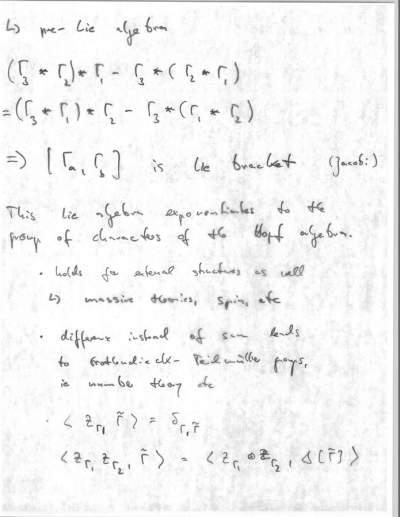 ↳ pre-Lie algebra
(Γ₃ * Γ₂) * Γ₁ - Γ₃ * (Γ₂ * Γ₁)
= (Γ₃ * Γ₁) * Γ₂ - Γ₃ * (Γ₁ * Γ₂)
⇒ [Γₐ, Γ_b] is Lie bracket (Jacobi)
This Lie algebra exponentiates to the
group of characters of the Hopf algebra.
· holds for external structures as well
↳ massive theories, spin, etc
· difference instead of sum leads
to Grothendieck-Teichmüller groups,
ie number theory etc
· ⟨ Z_Γ₁, Γ̃ ⟩ = δ_Γ₁,Γ̃
⟨ Z_Γ₁ Z_Γ₂, Γ̃ ⟩ = ⟨ Z_Γ₁ ⊗ Z_Γ₂, Δ(Γ̃) ⟩